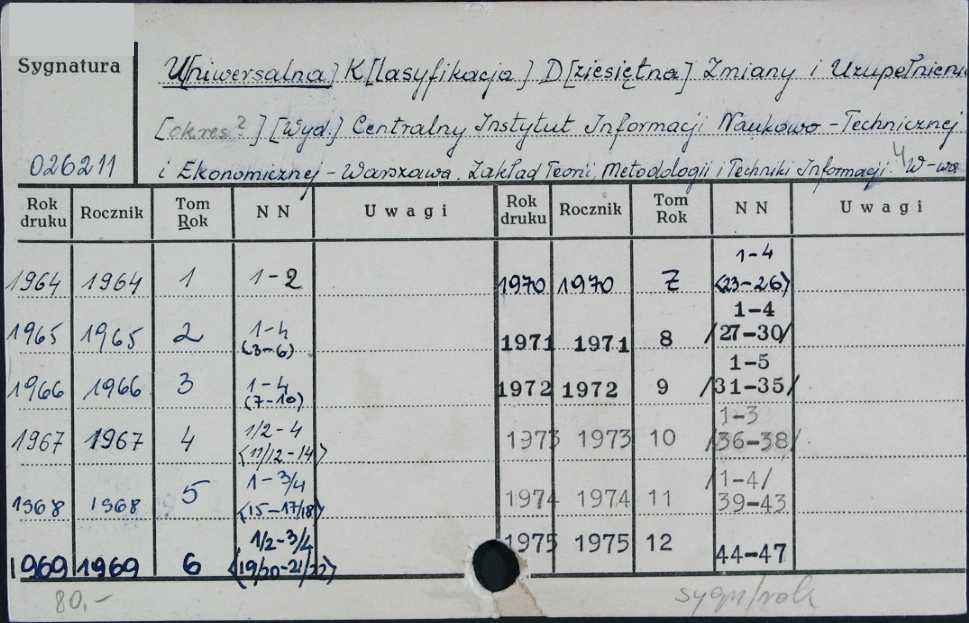 Sygnatura
U[niwersalna] K[lasyfikacja] D[ziesiętna] Zmiany i Uzupełnienia
[okres?] [Wyd.] Centralny Instytut Informacji Naukowo-Technicznej
026211
i Ekonomicznej - Warszawa. Zakład Teorii, Metodologii i Techniki Informacji. W-wa
Rok druku Rocznik Tom Rok NN Uwagi Rok druku Rocznik Tom Rok NN Uwagi
1964 1964 1 1-2 1970 1970 7 1-4 (23-26)
1965 1965 2 1-4 (3-6) 1971 1971 8 1-4 /27-30/
1966 1966 3 1-4 (7-10) 1972 1972 9 1-5 /31-35/
1967 1967 4 1/2-4 (11/12-14) 1973 1973 10 1-3 /36-38/
1968 1968 5 1-3/4 (15-17/18) 1974 1974 11 /1-4/ 39-43
1969 1969 6 1/2-3/4 (19/20-21/22) 1975 1975 12 44-47
80.-
sygn/rok